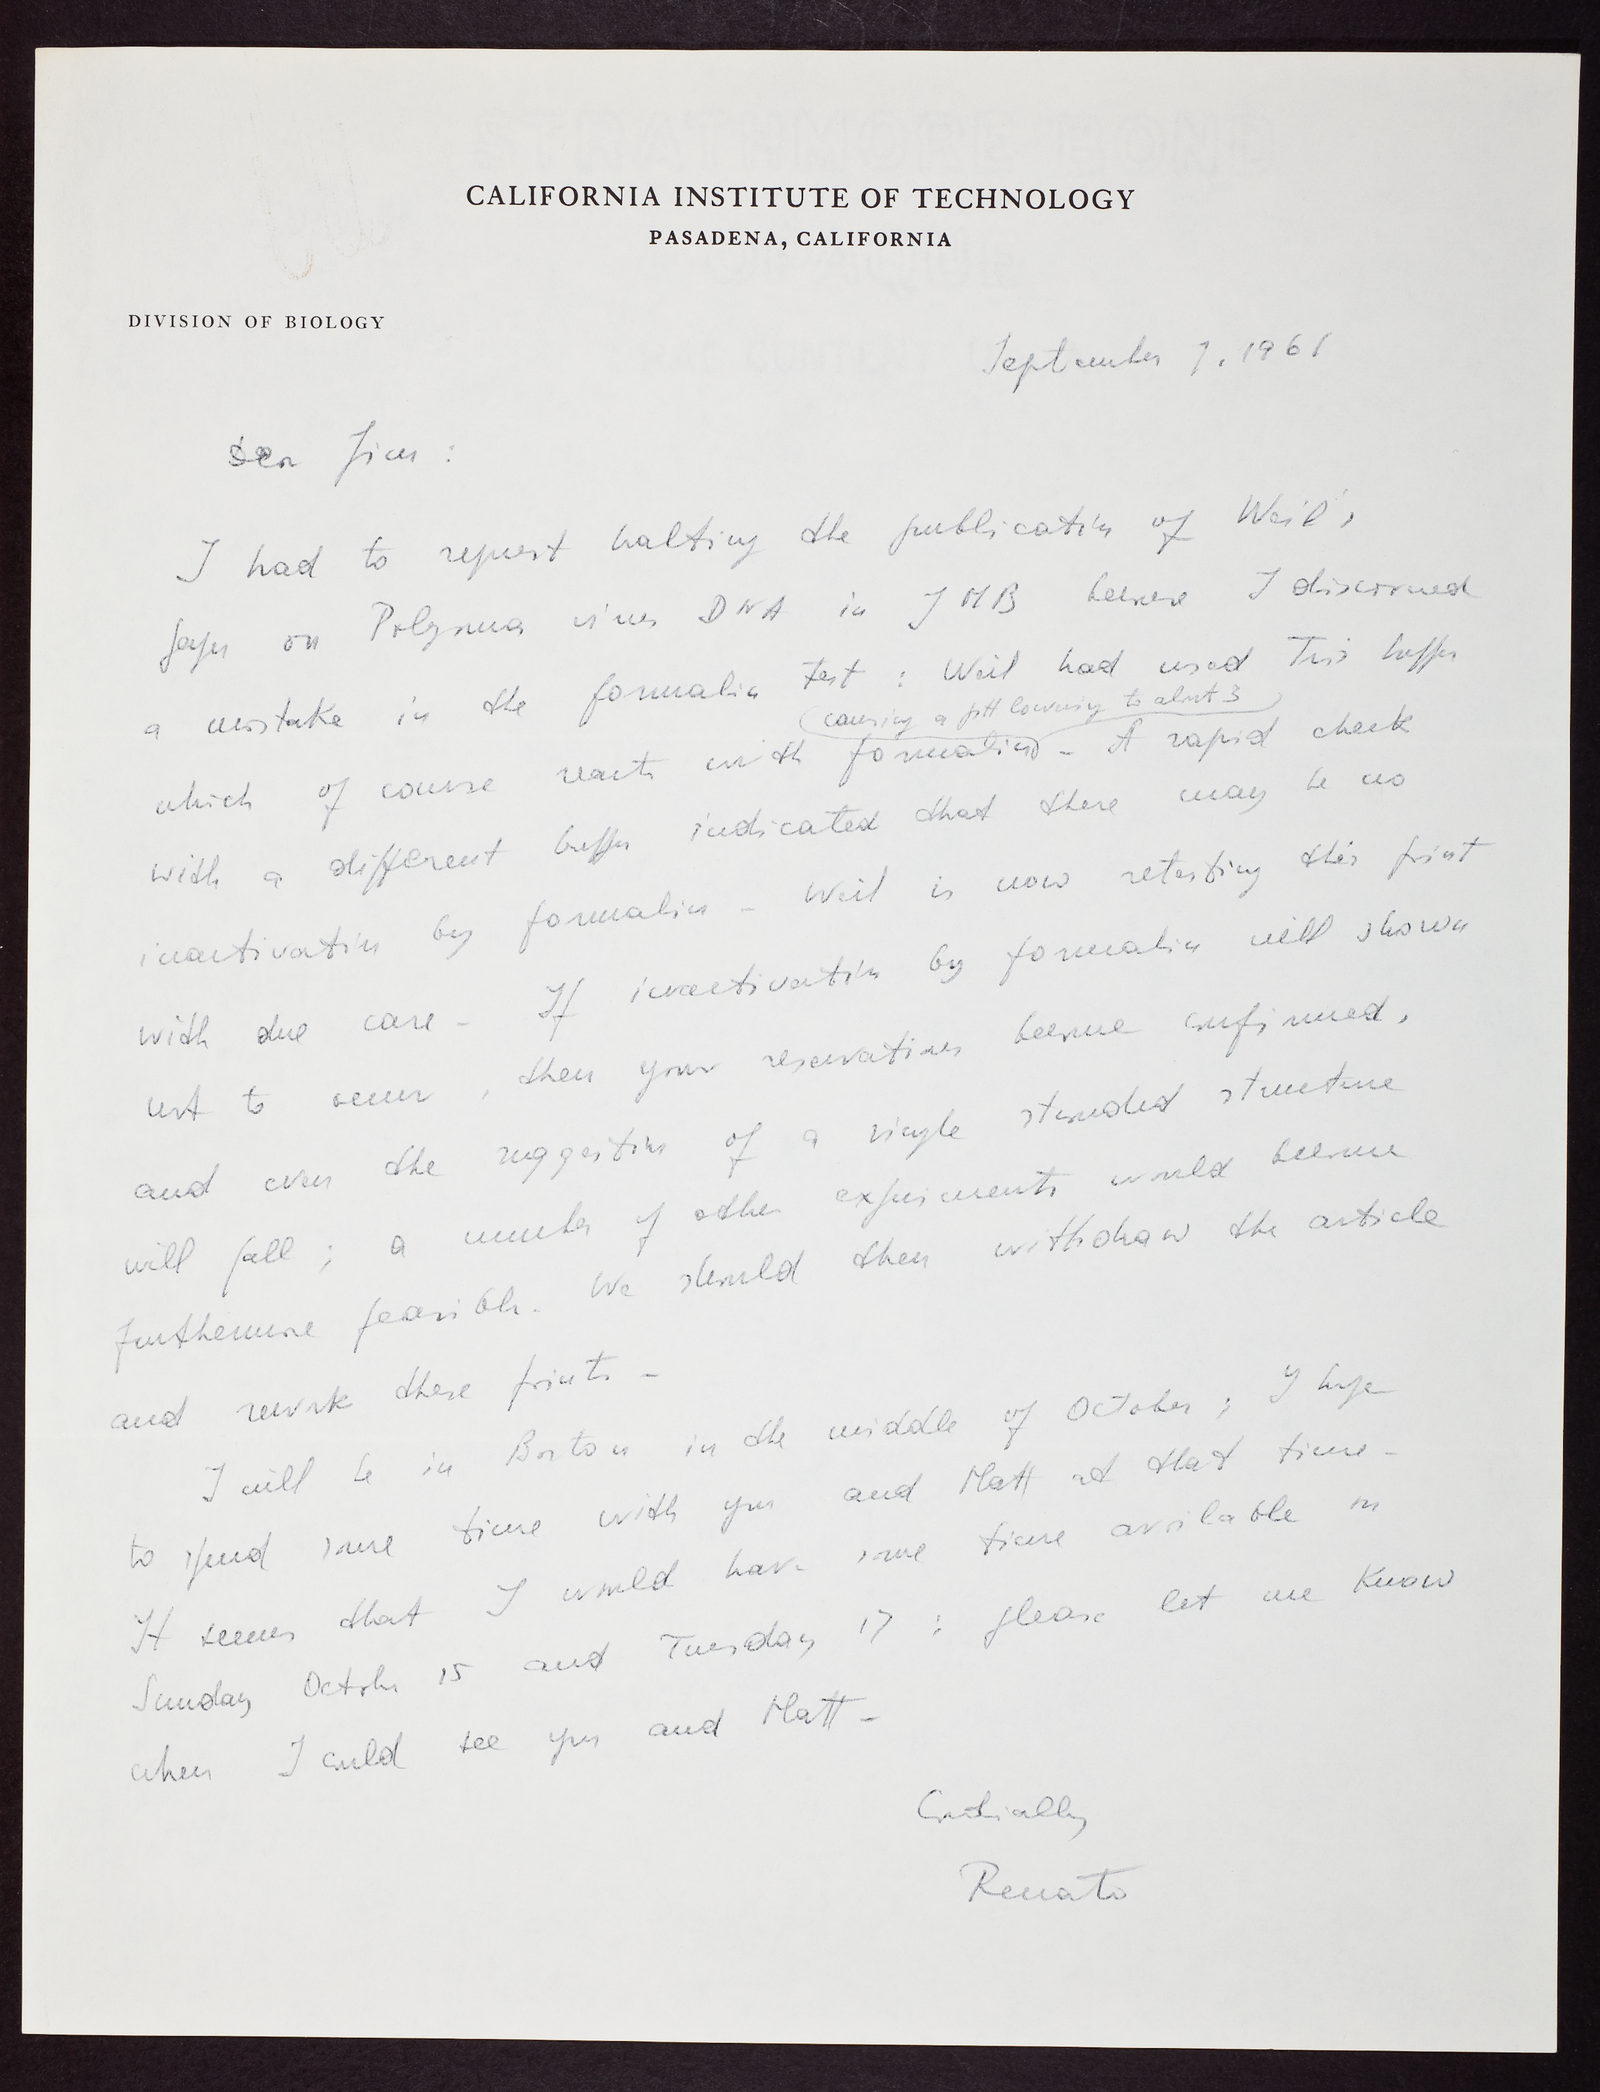 CALIFORNIA INSTITUTE OF TECHNOLOGY
PASADENA, CALIFORNIA
DIVISION OF BIOLOGY
September 7, 1961
Dear Jim :
I had to request halting the publication of Weil's
paper on Polyoma virus DNA in JMB because I discovered
a mistake in the formalin test : Weil had used Tris buffer
(causing a pH lowering to about 3)
which of course reacts with formalin - A rapid check
with a different buffer indicated that there may be no
inactivation by formalin - Weil is now retesting this point
with due care - If inactivation by formalin will shown
not to occur , then your reservations become confirmed,
and even the suggestion of a single stranded structure
will fall ; a number of other experiments would become
furthermore feasible. We should then withdraw the article
and rework these points -
I will be in Boston in the middle of October ; I hope
to spend some time with you and Matt at that time -
It seems that I would have some time available on
Sunday October 15 and Tuesday 17 : please let me know
when I could see you and Matt -
Cordially
Renato